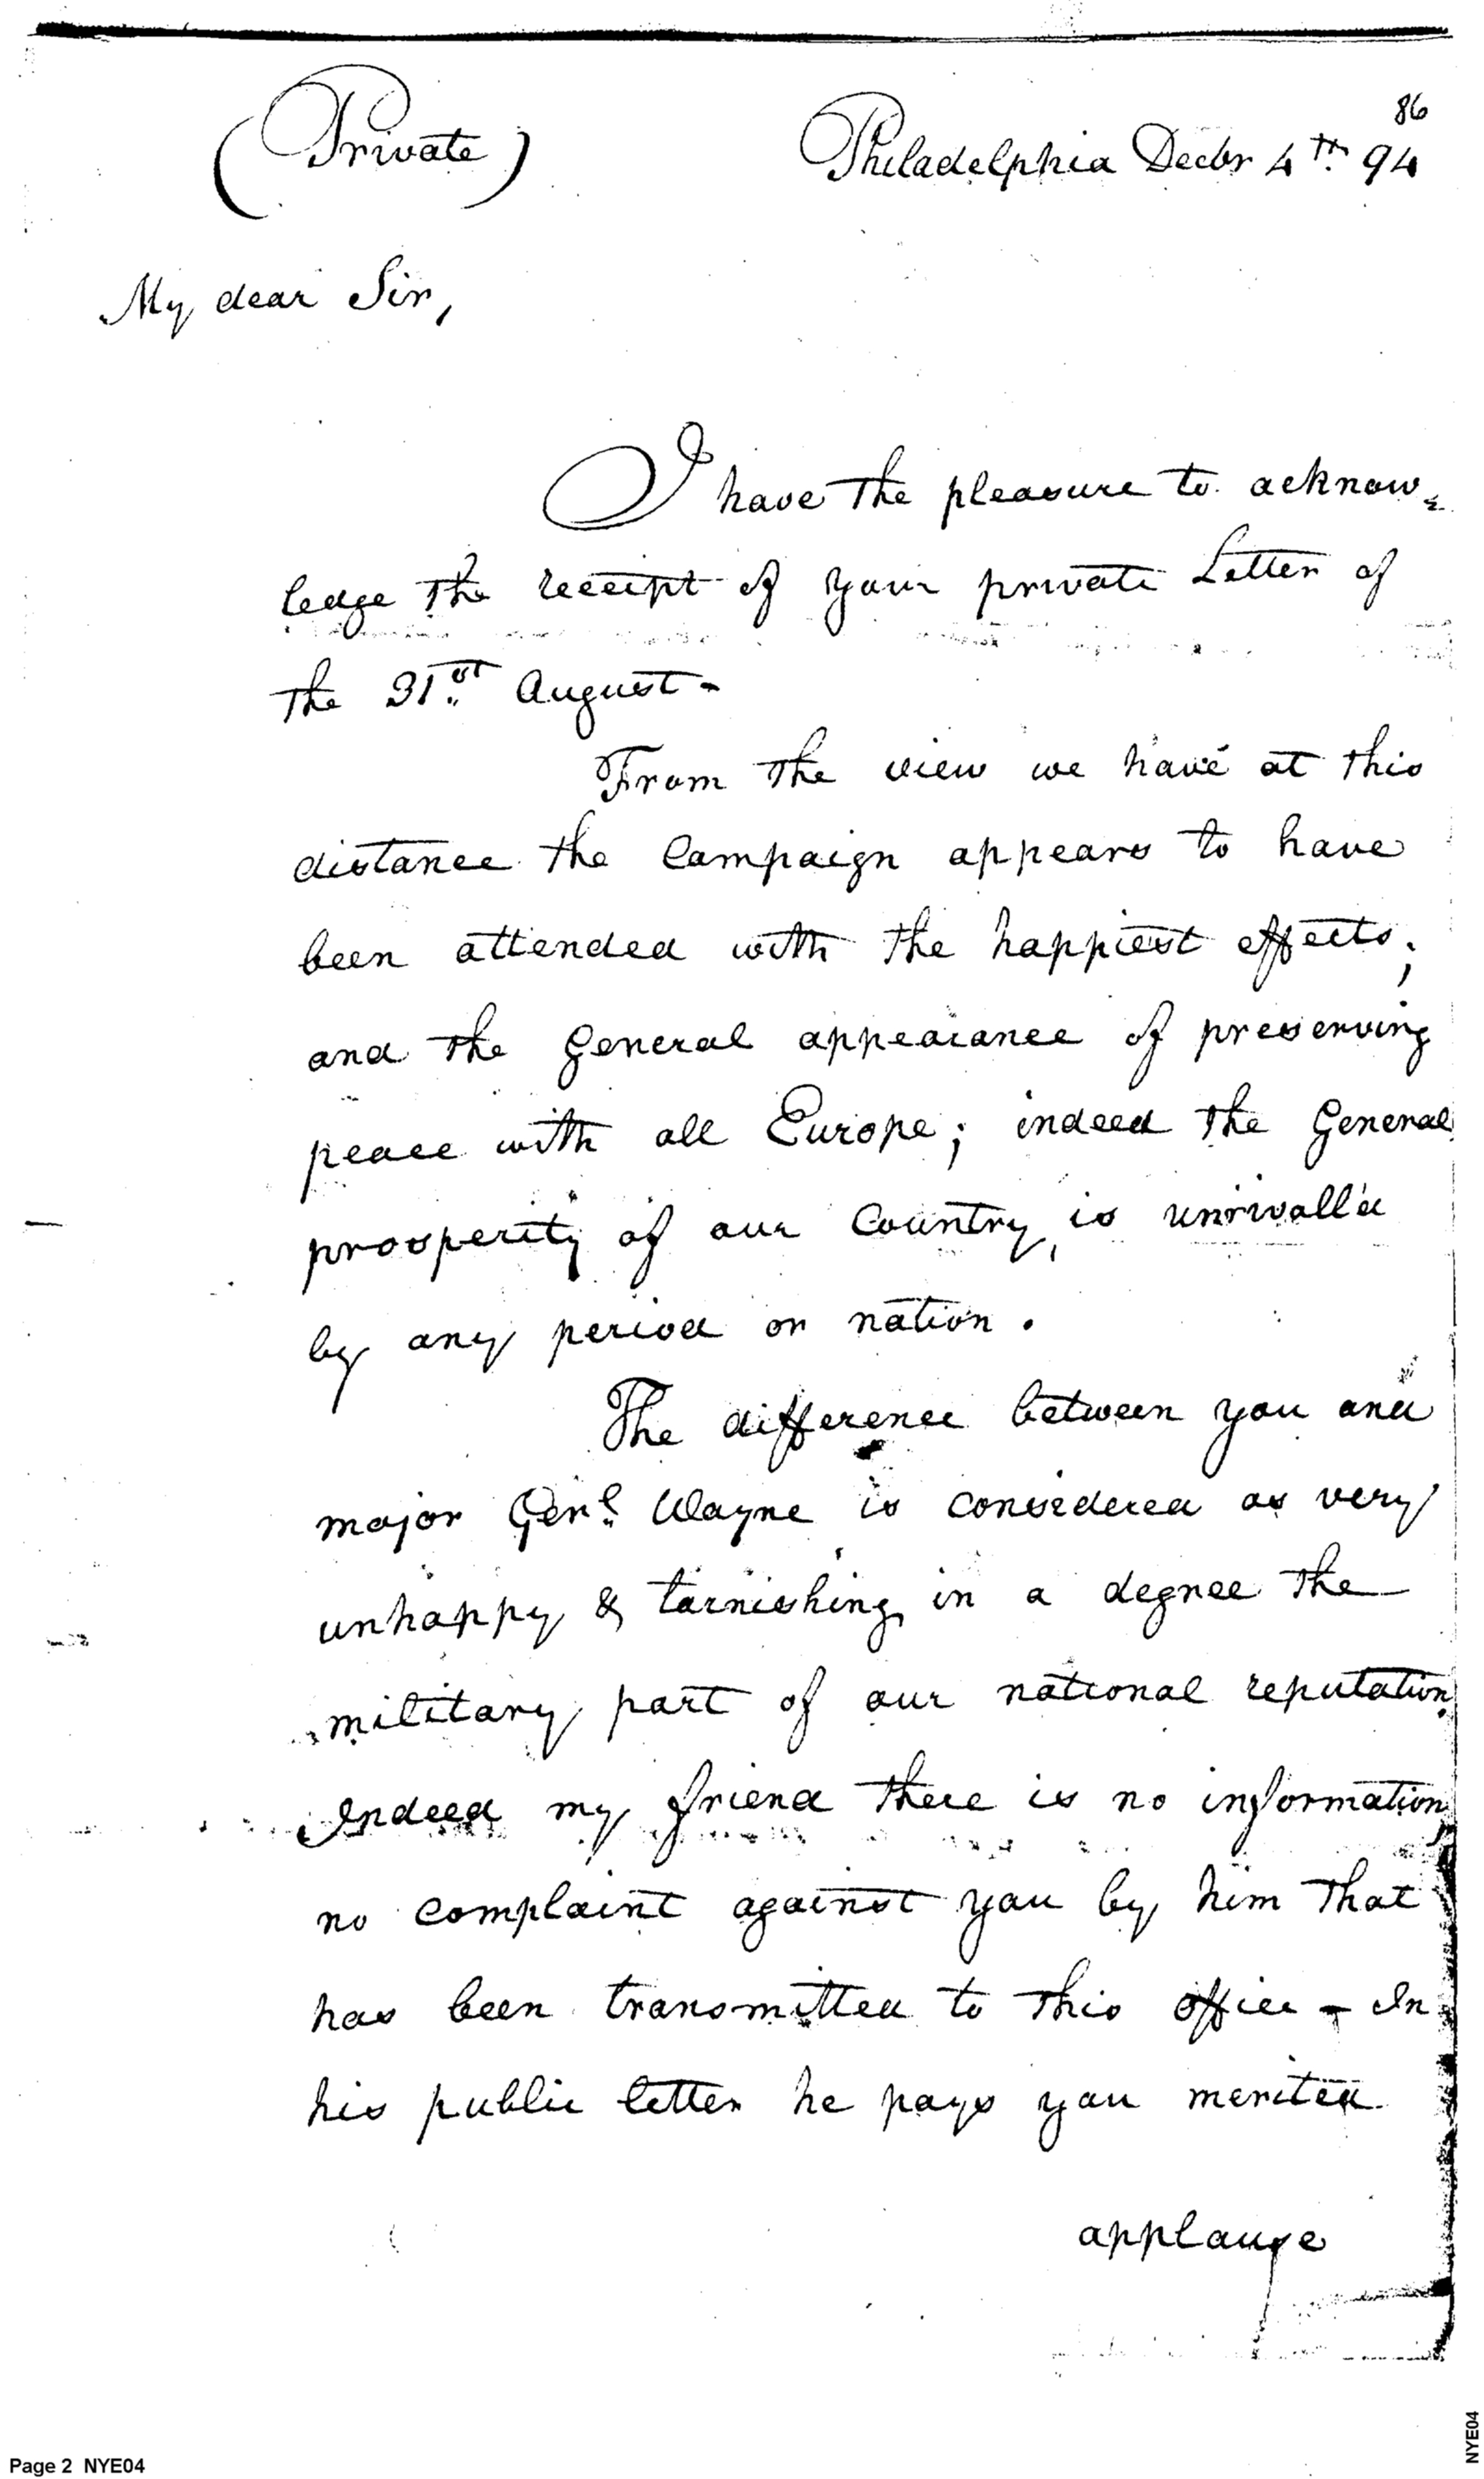 86
(Private) Philadelphia Decbr 4th. 94
My dear Sir,
I have the pleasure to acknow=
ledge the receipt of your private Letter of
the 31st. August -
From the view we have at this
distance the Campaign appears to have
been attended with the happiest effects;
and the General appearance of preserving
peace with all Europe; indeed the General
prosperity of our Country, is unrivall'd
by any period or nation.
The difference between you and
major Genl. Wayne is considered as very
unhappy & tarnishing in a degree the
military part of our national reputation.
Indeed my friend there is no information,
no complaint against you by him that
has been transmitted to this office - In
his public letter he pays you merited
applause
Page 2 NYE04
NYE04